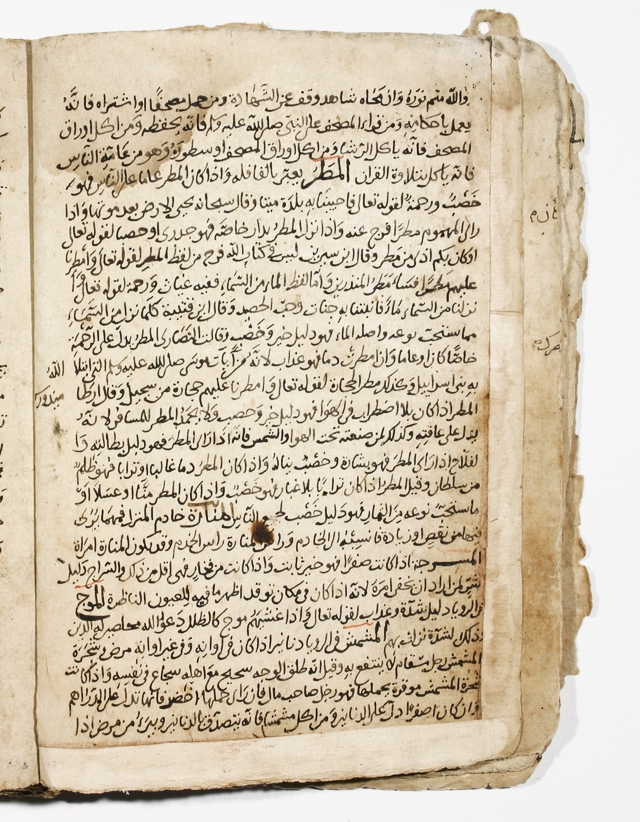 والله متم نوره وان محاه شاهد وقف عن الشهادة ومن حمل مصحفا او اشتراه فانه
يعمل باحكامه ومن قراء المصحف على النبي صلى الله عليه وسلم فانه يحفظه ومن اكل اوراق
المصحف فانه ياكل الرشا ومن اكل اوراق المصحف او سطوره وهو من عامة الناس
فانه ياكل بتلاوة القران المطر يعبر بالقافله واذا كان المطر عاما على الناس فهو
خصب ورحمة لقوله تعالى فاحيينا به بلدة ميتا وقال سبحانه يحيي الارض بعد موتها واذا
راى المهموم مطرا فرج عنه واذا نزل المطر بدار خاصة فهو جدري او حصا لقوله تعالى
ان كان بكم اذى من مطر وقال ابن سيرين ليس في كتاب الله فرج من لفظ المطر لقوله تعالى وامطرنا
عليهم مطرا فساء مطر المنذرين واما لفظ الماء من السماء ففيه غياث ورحمة لقوله تعالى
نزلنا من السماء ماء فانبتنا به جنات وحب الحصيد وقال ابن قتيبة كلما نزل من السماء
مما يستحب نوعه واصله الماء فهو دليل خير وخصب وقالت النصارى المطر يدل على الرحمة
خاصا كان او عاما وان امطرت دما فهو عذاب لانه من ايات موسى صلى الله عليه وسلم التي ابتلا الله
به بني اسرائيل وكذلك مطر الحجارة لقوله تعالى وامطرنا عليهم حجارة من سجيل وقال
المطر اذا كان بلا اضطراب في الهوا فهو دليل خير وخصب ولا يحمد المطر للمسافر لانه
يدل على عاقته وكذلك لمن صنعته تحت الهوا والشمس فانه اذا راى المطر فهو دليل بطالته واما
الفلاح اذا راى المطر فهو بشارة وخصب يناله واذا كان المطر دما غالبا او ترابا فهو ظلم
من سلطان وقيل المطر اذا كان ترابا بلا غبار فهو خصب واذا كان المطر منا او عسلا او
ما يستحب نوعه من الثمار فهو دليل خصب لجميع الناس المنارة خادم المنزل فمهما يرى
فيها من نقص او زيادة فانسبه الى الخادم وراس المنارة راس الخادم وقد يكون المنارة امراة
المسرجة اذا كانت صفرا فهو خير ثابت وان كانت من فخار فهي اقل من ذلك والسراج دليل
لمن اراد ان يخفي امره لانه اذا كان في مكان توقد اظهر ما فيه للعيون الناظرة الموج
في الرويا دليل شدة وعذاب لقوله تعالى واذا غشيهم موج كالظلل دعوا الله مخلصين له الدين
وذلك لشدة نزلت بهم المشمش في الرويا دنانير اذا كان في اوانه وفي غير اوانه مرض وشجرة
المشمش رجل مسقام لا ينتفع به وقيل انه طلق الوجه سحيح مع اهله شجاع في نفسه واذا كانت
شجرة المشمش موقرة بحملها فهو رجل صاحب مال فان راى حملها اخضر فانها تدل على الدراهم
وان كان اصفر دل على الدنانير ومن اكل مشمشا فانه يتصدق بالدنانير ويبرا من مرض اذا